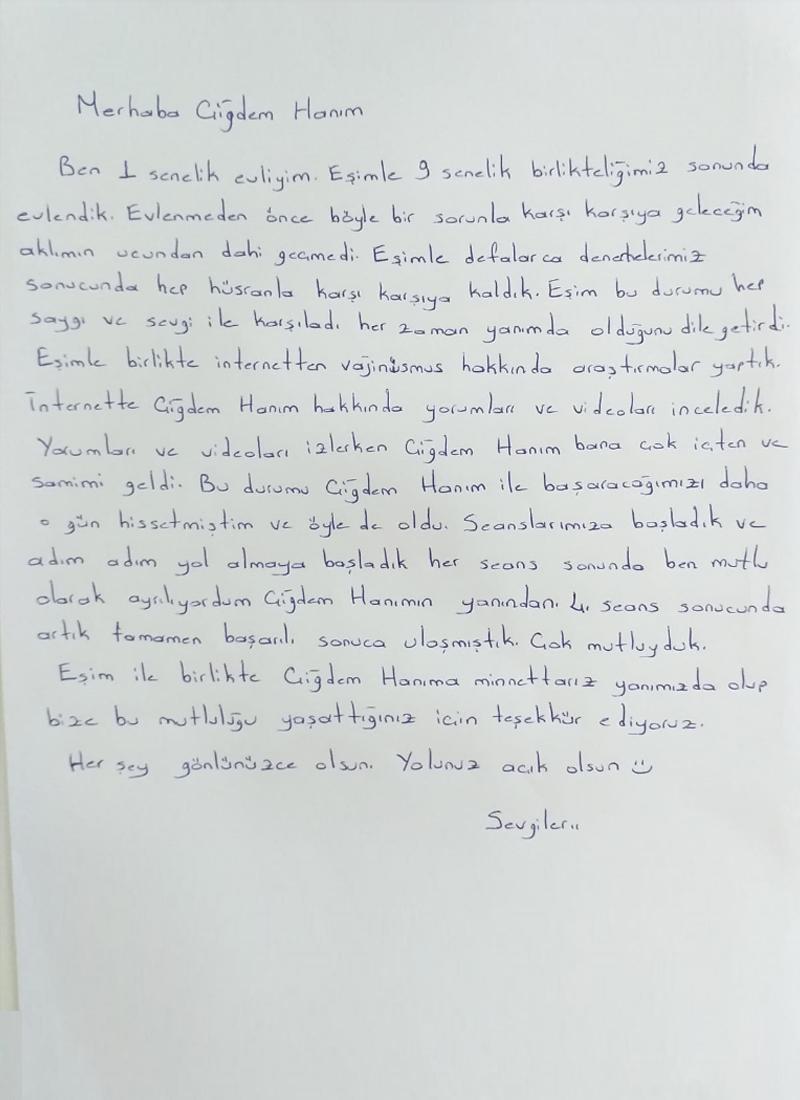 Merhaba Çiğdem Hanım
Ben 1 senelik evliyim. Eşimle 9 senelik birlikteliğimiz sonunda
evlendik. Evlenmeden önce böyle bir sorunla karşı karşıya geleceğim
aklımın ucundan dahi geçmedi. Eşimle defalarca denemelerimiz
sonucunda hep hüsranla karşı karşıya kaldık. Eşim bu durumu hep
saygı ve sevgi ile karşıladı her zaman yanımda olduğunu dile getirdi.
Eşimle birlikte internetten vajinusmus hakkında araştırmalar yaptık.
İnternette Çiğdem Hanım hakkında yorumları ve videoları inceledik.
Yorumları ve videoları izlerken Çiğdem Hanım bana çok içten ve
samimi geldi. Bu durumu Çiğdem Hanım ile başaracağımızı daha
o gün hissetmiştim ve öyle de oldu. Seanslarımıza başladık ve
adım adım yol almaya başladık her seans sonunda ben mutlu
olarak ayrılıyordum Çiğdem Hanımın yanından. 4. seans sonucunda
artık tamamen başarılı sonuca ulaşmıştık. Çok mutluyduk.
Eşim ile birlikte Çiğdem Hanıma minnettarız yanımızda olup
bize bu mutluluğu yaşattığınız için teşekkür ediyoruz.
Her şey gönlünüzce olsun. Yolunuz açık olsun :)
Sevgiler..